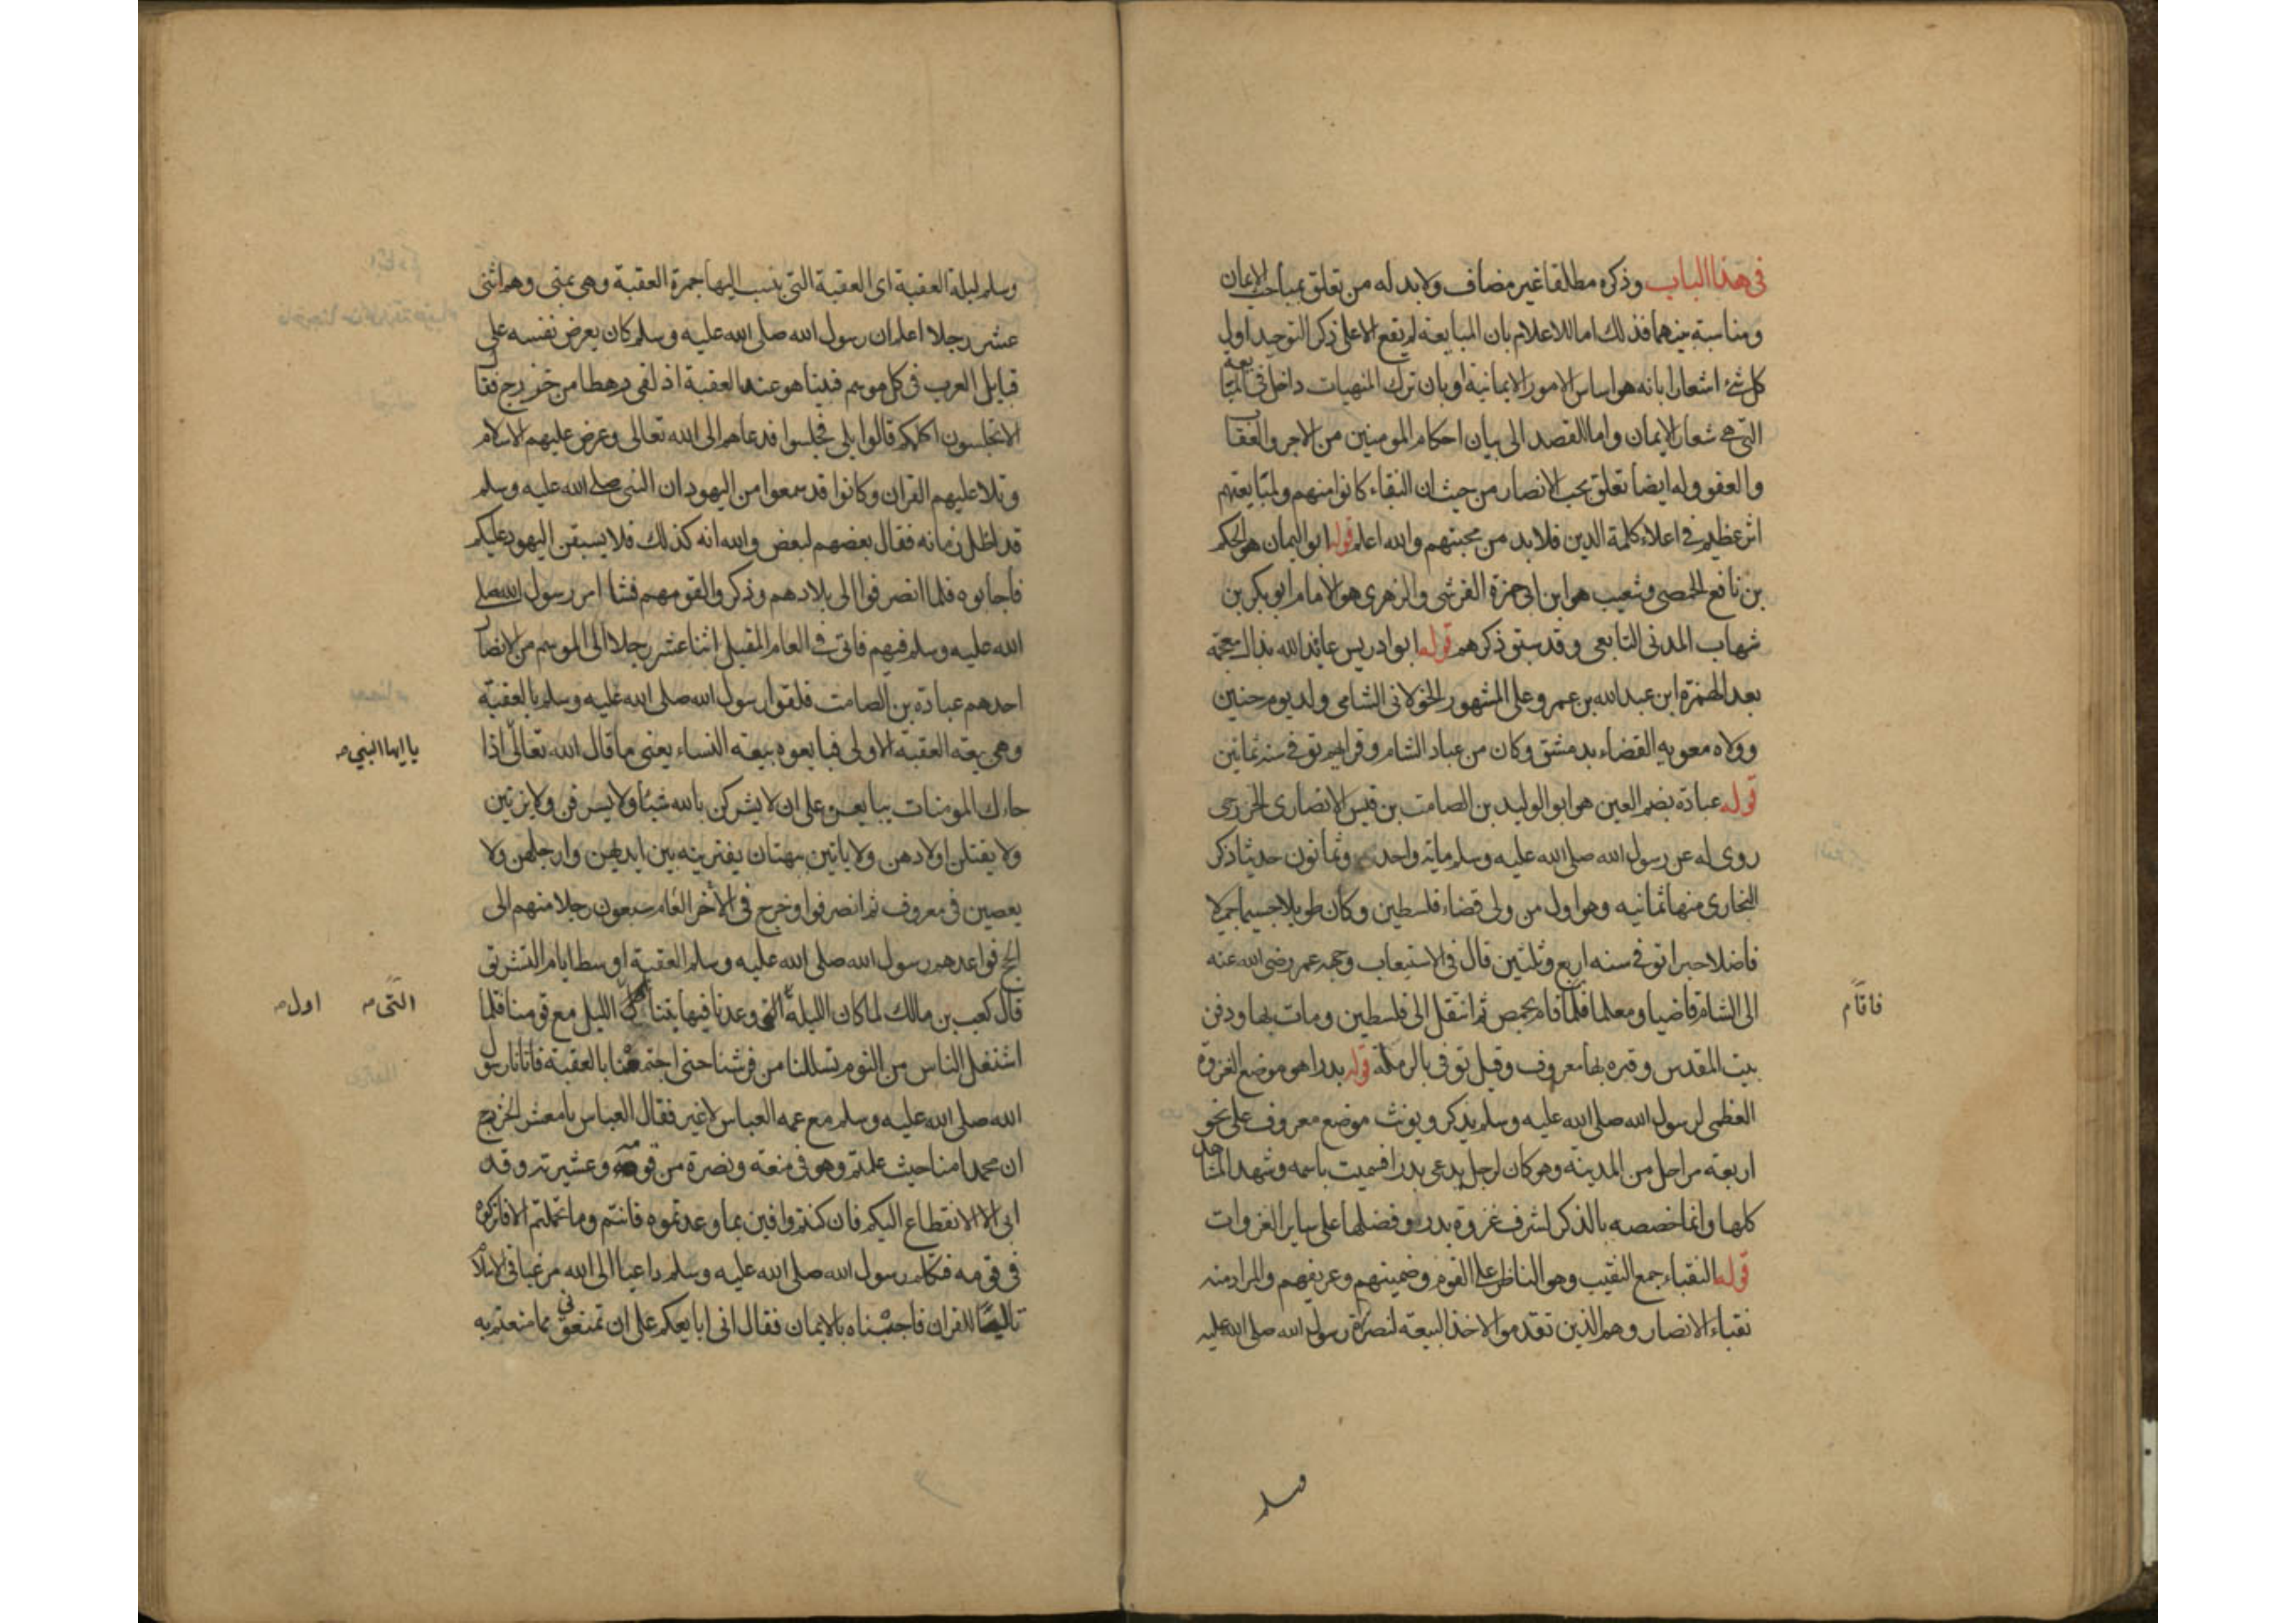 في هذا الباب وذكره مطلقا غير مضاف ولا بد له من تعلق بمباحث الايمان
ومناسبة بينهما فذلك اما للاعلام بان المبايعة لم يقع الا على ذكر التوحيد اول
كل شئ اشعارا بانه هو اساس الامور الايمانية او بان ترك المنهيات داخل في المبايعة
التي هي شعار الايمان واما للقصد الى بيان احكام المومنين من الاجر والعقاب
والعفو وله ايضا تعلق بحب الانصار من حيث ان النقباء كانوا منهم ولمبايعتهم
اثر عظيم في اعلاء كلمة الدين فلا بد من محبتهم والله اعلم قوله ابو اليمان هو الحكم
بن نافع الحمصي وشعيب هو ابن ابي حمزة القرشي والزهري هو الامام ابو بكر بن
شهاب المدني التابعي وقد سبق ذكرهم قوله ابو ادريس عائذ الله بذال معجمة
بعد الهمزة ابن عبد الله بن عمر وعلى المشهور الخولاني الشامي ولد يوم حنين
وولاه معوية القضاء بدمشق وكان من عباد الشام وقرائهم توفي سنه ثمانين
قوله عبادة بضم العين هو ابو الوليد بن الصامت بن قيس الانصاري الخزرجي
روى له عن رسول الله صلى الله عليه وسلم مائة واحد وثمانون حديثا ذكر
البخاري منها ثمانيه وهو اول من ولى قضاء فلسطين وكان طويلا جسيما جميلا
فاضلا خيرا توفي سنه اربع وثلثين قال في الاستيعاب وجهه عمر رضي الله عنه
الى الشام قاضيا ومعلما فلما قام بحمص ثم انتقل الى فلسطين ومات بها ودفن
فاقام
بيت المقدس وقبره بها معروف وقيل توفي بالرملة قوله بدرا هو موضع الغزوة
العظمى لرسول الله صلى الله عليه وسلم يذكر ويونث موضع معروف على نحو
اربعة مراحل من المدينة وهو كان لرجل يدعى بدرا فسميت باسمه وشهد المشاهد
كلها وانما خصصه بالذكر لشرف غزوة بدر وفضلها على ساير الغزوات
قوله النقباء جمع النقيب وهو الناظر على القوم وضمينهم وعريفهم والمراد منه
نقباء الانصار وهم الذين تقدموا لاخذ البيعة لنصرة رسول الله صلى الله عليه
وسلم
وسلم ليلة العقبة اى العقبة التي ينسب اليها جمرة العقبة وهي بمنى وهم اثنى
عشر رجلا اعلم ان رسول الله صلى الله عليه وسلم كان يعرض نفسه على
قبايل العرب في كل موسم فبينا هو عند العقبة اذ لقى رهطا من خزرج فقال
الا تجلسون اكلمكم قالوا بلى فجلسوا فدعاهم الى الله تعالى وعرض عليهم الاسلام
وتلا عليهم القران وكانوا قد سمعوا من اليهود ان النبي صلى الله عليه وسلم
قد اظل زمانه فقال بعضهم لبعض والله انه كذلك فلا يسبقن اليهود عليكم
فاجابوه فلما انصرفوا الى بلادهم وذكروا لقومهم فشا امر رسول الله صلى
الله عليه وسلم فيهم فاتى في العام المقبل اثنا عشر رجلا الى الموسم من الانصار
احدهم عبادة بن الصامت فلقوا رسول الله صلى الله عليه وسلم بالعقبة
وهي بيعة العقبة الاولى فبايعوه بيعة النساء يعني ما قال الله تعالى اذا
يا ايها النبي صح
جاءك المومنات يبايعنك على ان لا يشركن بالله شيئا ولا يسرقن ولا يزنين
ولا يقتلن اولادهن ولا ياتين ببهتان يفترينه بين ايديهن وارجلهن ولا
يعصين في معروف ثم انصرفوا وخرج في الآخر العام سبعون رجلا منهم الى
الحج فواعدهم رسول الله صلى الله عليه وسلم العقبة اوسط ايام التشريق
قال كعب بن مالك لما كان الليلة التي وعدنا فيها بتنا الليل مع قومنا فلما
التي صح اول صح
استثقل الناس من النوم تسللنا من فرشنا حتى اجتمعنا بالعقبة فاتانا رسول
الله صلى الله عليه وسلم مع عمه العباس لا غير فقال العباس يا معشر الخزرج
ان محمدا منا حيث علمتم وهو في منعة ونصرة من قومه وعشيرته وقد
ابى الا الانقطاع اليكم فان كنتم وافين بما وعدتموه فانتم وما تحملتم الا فاتركوه
في قومه فتكلم رسول الله صلى الله عليه وسلم داعيا الى الله مرغبا في الاسلام
تاليا للقران فاجبناه بالايمان فقال اني ابايعكم على ان تمنعوني مما منعتم به